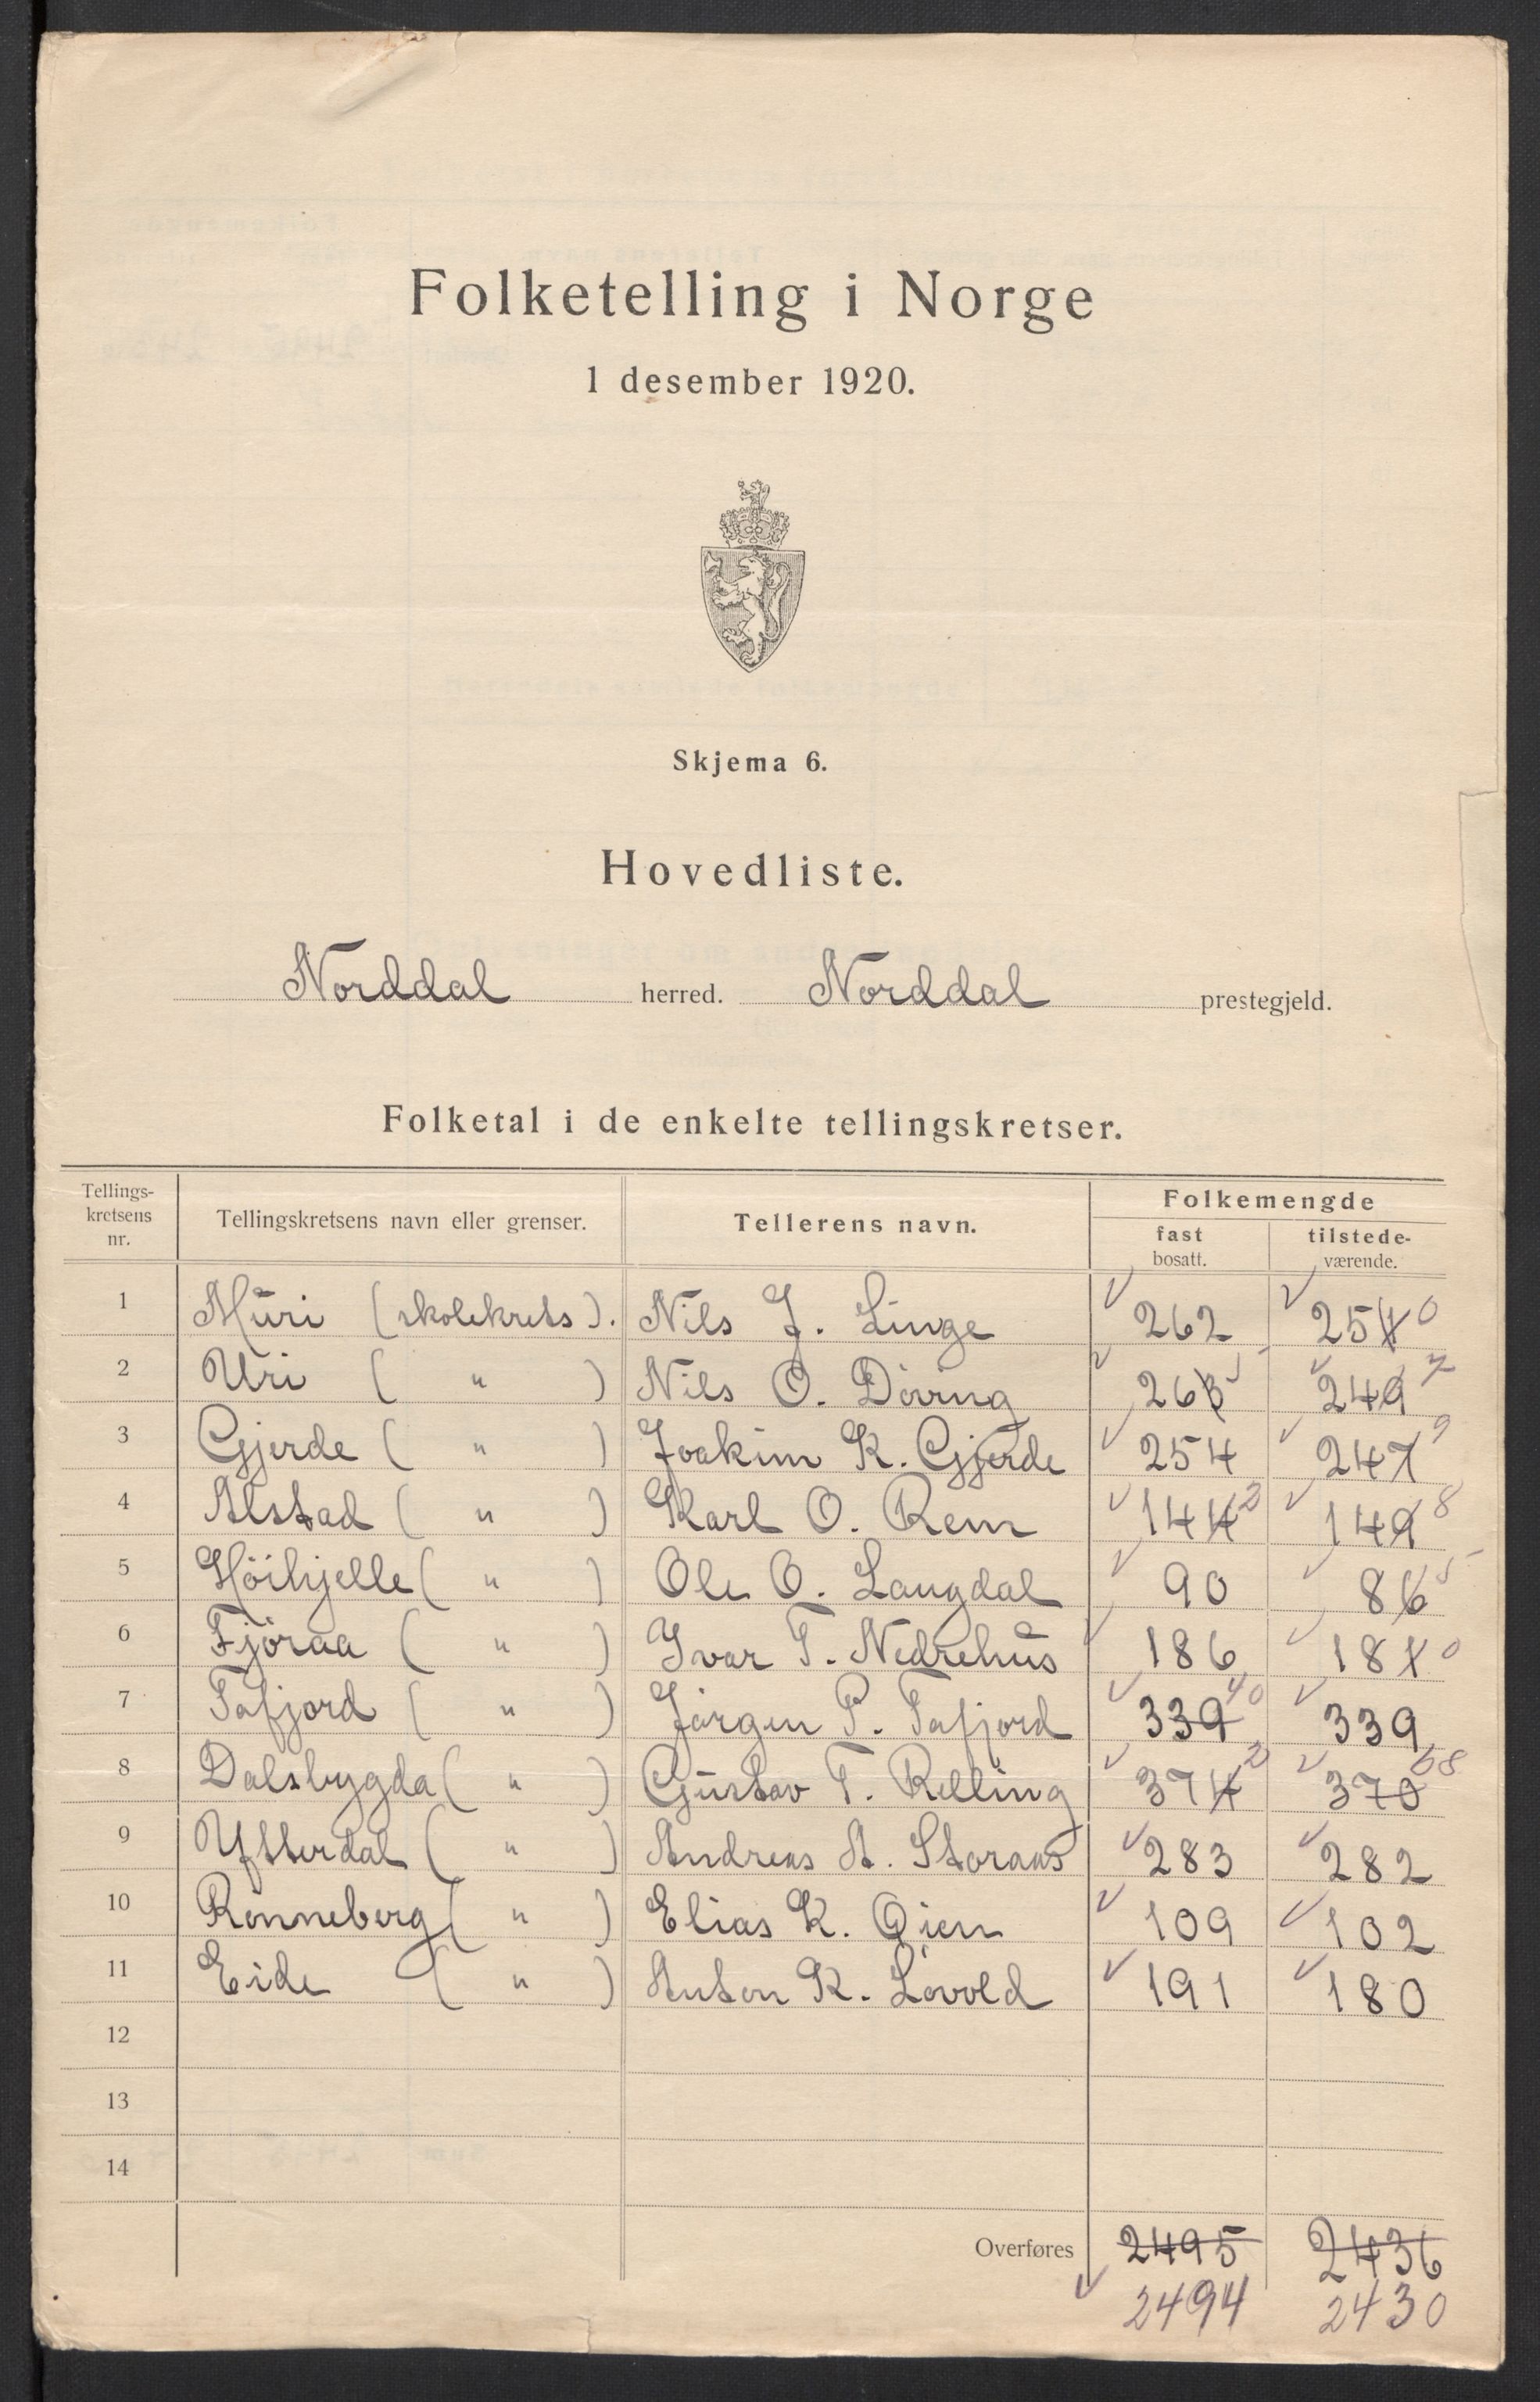 Folketelling i Norge
1 desember 1920.
Skjema 6.
Hovedliste.
Norddal herred. Norddal prestegjeld.
Folketal i de enkelte tellingskretser.
Tellings-
kretsens
nr.
Tellingskretsens navn eller grenser.
Tellerens navn.
Folkemengde
fast
bosatt.
tilstede-
værende.
1 Muri (skolekrets). Nils J. Linge 262 251 0
2 Uri ( " ) Nils O. Döving 263 5 249 7
3 Gjerde ( " ) Joakim K. Gjerde 254 247 9
4 Alstad ( " ) Karl O. Rem 144 2 149 8
5 Höihjelle ( " ) Ole O. Langdal 90 86 5
6 Fjöraa ( " ) Ivar T. Nedrehus 186 181 0
7 Tafjord ( " ) Jörgen P. Tafjord 339 40 339
8 Dalsbygda ( " ) Gustav T. Relling 374 2 370 68
9 Ytterdal ( " ) Andreas A. Storaas 283 282
10 Rönneberg ( " ) Elias K. Öien 109 102
11 Eide ( " ) Anton K. Lövold 191 180
12
13
14
Overføres 2495 2436
2494 2430